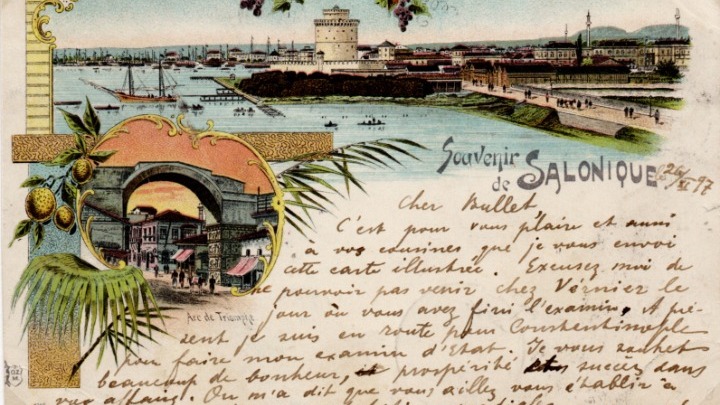 Souvenir
de SALONIQUE
26/XI 97
Arc de Triomphe
Cher Bullet
C'est pour vous plaire et aussi
à vos cousines que je vous envoi
cette carte illustrée. Excusez moi de
ne pouvoir pas venir chez Vernier le
jour où vous avez fini l'examin. A pré-
sent je suis en route pour Constentinople
pour faire mon examin d'Etat. Je vous souhets
beaucoup de bonheur, prospérité et succès dans
vos affairs. On m'a dit que vous aillez vous établir à